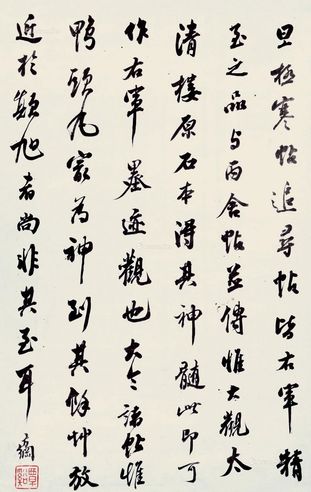 旦極寒帖追尋帖皆右軍精
至之品与丙舍帖並傳惟大觀太
清樓原石本得其神髓此即可
作右軍墨迹觀也大令諸帖惟
鴨頭丸㝡為神到其餘艸放
近於顛旭者尚非其至耳
覃谿